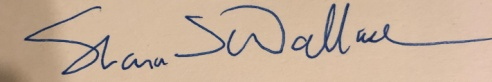 Shana S Wallace